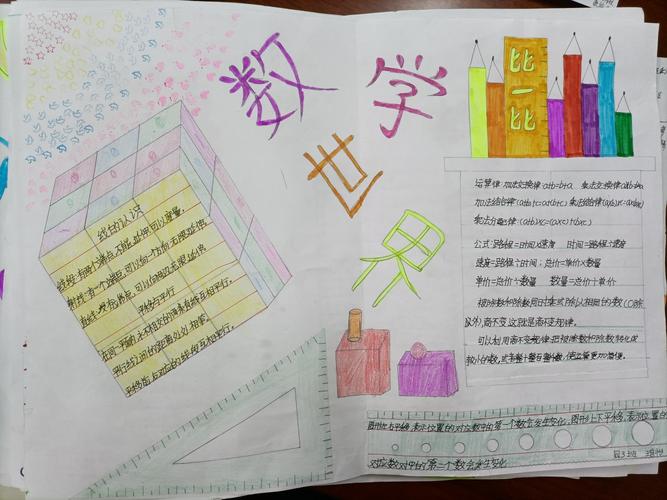 数学
世界
比一比
线的认识
线段:有两个端点,不能延伸,可以度量。
射线:有一个端点,可以向一个方向无限延伸
直线:没有端点,可以向两边无限延伸
平移与平行
在同一平面内,永不相交的两条直线互相平行。
平行线之间的距离处处相等。
运算律:加法交换律:a+b=b+a 乘法交换律:a×b=b×a
加法结合律:(a+b)+c=a+(b+c) 乘法结合律:(a×b)×c=a×(b×c)
乘法分配律:(a+b)×c=(a×c)+(b×c)
公式:路程=时间×速度 时间=路程÷速度
速度=路程÷时间;总价=单价×数量
单价=总价÷数量 数量=总价÷单价
被除数和除数同时乘或除以相同的数(0除
以外),商不变,这就是商不变规律。
可以利用商不变规律,把被除数和除数转化成
较小的数,或整十整百整千数,使运算更加简便。
图形左右平移,表示位置的对应数对中的第一个数会发生变化,图形上下平移,表示位置的
对应数对中的第二个数会发生变化